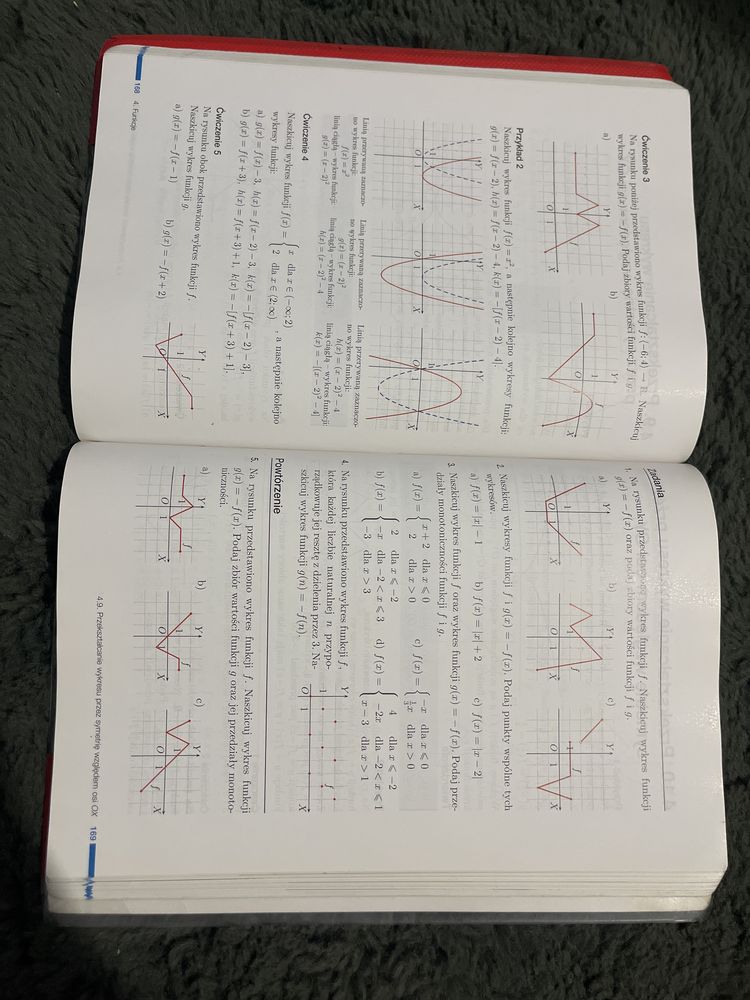 Ćwiczenie 3
Na rysunku poniżej przedstawiono wykres funkcji f: (−6; 4) → R. Naszkicuj
wykres funkcji g(x) = −f(x). Podaj zbiory wartości funkcji f i g.
a)
b)
Y
f
1
O
1
X
Y
f
1
O
1
X
Przykład 2
Naszkicuj wykres funkcji f(x) = x², a następnie kolejno wykresy funkcji:
g(x) = f(x − 2), h(x) = f(x − 2) − 4, k(x) = −[f(x − 2) − 4].
Y
1
O
1
X
Y
1
O
1
X
Y
1
O
1
X
Linią przerywaną zaznaczo-
no wykres funkcji:
f(x) = x²
linią ciągłą – wykres funkcji:
g(x) = (x − 2)²
Linią przerywaną zaznaczo-
no wykres funkcji:
g(x) = (x − 2)²
linią ciągłą – wykres funkcji:
h(x) = (x − 2)² − 4
Linią przerywaną zaznaczo-
no wykres funkcji:
h(x) = (x − 2)² − 4
linią ciągłą – wykres funkcji:
k(x) = −[(x − 2)² − 4]
Ćwiczenie 4
Naszkicuj wykres funkcji f(x) = { x dla x ∈ (−∞; 2)
2 dla x ∈ ⟨2; ∞) , a następnie kolejno
wykresy funkcji:
a) g(x) = f(x) − 3, h(x) = f(x − 2) − 3, k(x) = −[f(x − 2) − 3],
b) g(x) = f(x + 3), h(x) = f(x + 3) + 1, k(x) = −[f(x + 3) + 1].
Ćwiczenie 5
Na rysunku obok przedstawiono wykres funkcji f.
Naszkicuj wykres funkcji g.
a) g(x) = −f(x − 1)
b) g(x) = −f(x + 2)
Y
f
1
O
1
X
168 4. Funkcje
Zadania
1. Na rysunku przedstawiono wykres funkcji f. Naszkicuj wykres funkcji
g(x) = −f(x) oraz podaj zbiory wartości funkcji f i g.
a)
b)
c)
Y
f
1
O
1
X
Y
f
1
O
1
X
Y
f
1
O
1
X
2. Naszkicuj wykresy funkcji f i g(x) = −f(x). Podaj punkty wspólne tych
wykresów.
a) f(x) = |x| − 1
b) f(x) = |x| + 2
c) f(x) = |x − 2|
3. Naszkicuj wykres funkcji f oraz wykres funkcji g(x) = −f(x). Podaj prze-
działy monotoniczności funkcji f i g.
a) f(x) = { x + 2 dla x ⩽ 0
2 dla x > 0
c) f(x) = { −x dla x ⩽ 0
½x dla x > 0
b) f(x) = { 2 dla x ⩽ −2
−x dla −2 < x ⩽ 3
−3 dla x > 3
d) f(x) = { 4 dla x ⩽ −2
−2x dla −2 < x ⩽ 1
x − 3 dla x > 1
4. Na rysunku przedstawiono wykres funkcji f,
która każdej liczbie naturalnej n przypo-
rządkowuje jej resztę z dzielenia przez 3. Na-
szkicuj wykres funkcji g(n) = −f(n).
Y
f
1
O
1
X
Powtórzenie
5. Na rysunku przedstawiono wykres funkcji f. Naszkicuj wykres funkcji
g(x) = −f(x). Podaj zbiór wartości funkcji g oraz jej przedziały monoto-
niczności.
a)
b)
c)
Y
f
1
O
1
X
Y
f
1
O
1
X
Y
f
1
O
1
X
4.9. Przekształcanie wykresu przez symetrię względem osi OX 169